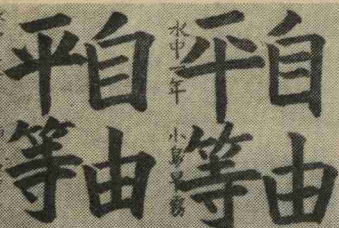 自由
平等
水中一年 小島早苗
自由
平等